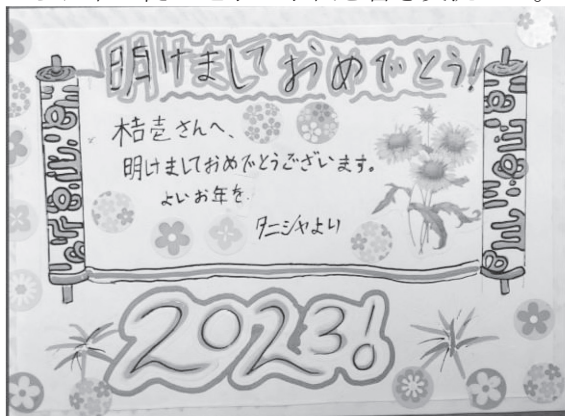 明けましておめでとう!
桔壱さんへ、
明けましておめでとうございます。
よいお年を
タニシャより
2023!